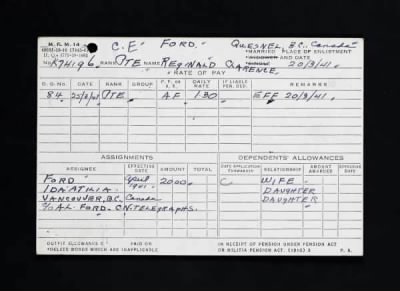 M.F.M. 14
C.E. FORD. QUESNEL, B.C., Canada
MARRIED PLACE OF ENLISTMENT
WIDOWER AND DATE
No. K74196 RANK PTE NAME REGINALD CLARENCE SINGLE 20/3/41
RATE OF PAY
D.O. No. DATE RANK GROUP P.F. or A.F. DAILY RATE IF LIABLE PER. DED. REMARKS
84 25/3/41 PTE AF 1.30 EFF 20/3/41.
ASSIGNMENTS DEPENDENTS' ALLOWANCES
ASSIGNEE EFFECTIVE DATE AMOUNT TOTAL DATE APPLICATION FORWARDED RELATIONSHIP AMOUNT AWARDED EFFECTIVE DATE
FORD April 2000 C WIFE
IDA 1941 DAUGHTER
VANCOUVER, B.C. Canada DAUGHTER
C/O A.L. FORD. C.N. TELEGRAPHS.
OUTFIT ALLOWANCE $ PAID ON IN RECEIPT OF PENSION UNDER PENSION ACT
*DELETE WORDS WHICH ARE INAPPLICABLE. OR MILITIA PENSION ACT. P.A.